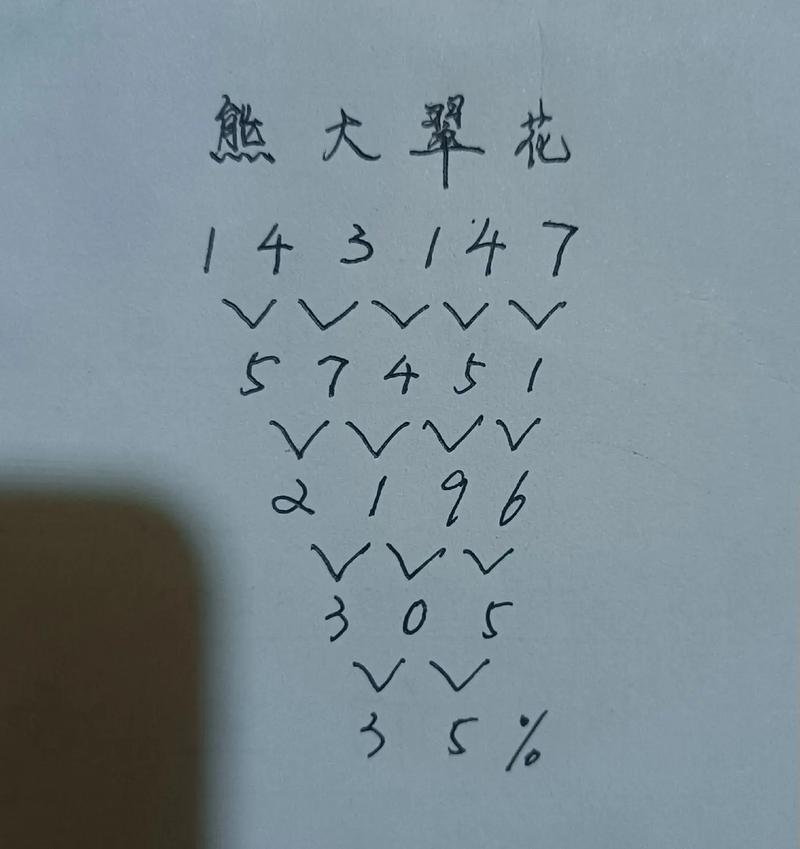 熊大翠花
1 4 3 1 4 7
5 7 4 5 1
2 1 9 6
3 0 5
3 5 %